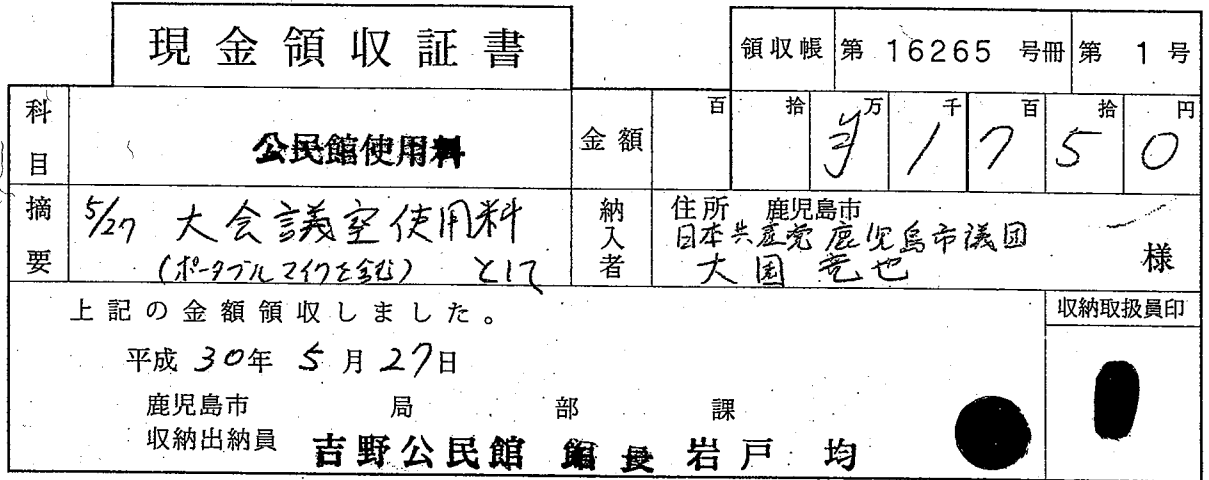 現金領収証書
領収帳 第 16265 号冊 第 1 号
科目 公民館使用料
金額 百 拾 万 千 百 拾 円
¥ 1 7 5 0
摘要 5/27 大会議室使用料
(ポータブルマイクを含む) として
納入者 住所 鹿児島市
日本共産党 鹿児島市議団
大園 竜也 様
上記の金額領収しました。
収納取扱員印
平成 30年 5月 27日
鹿児島市 局 部 課
収納出納員 吉野公民館 館長 岩戸 均